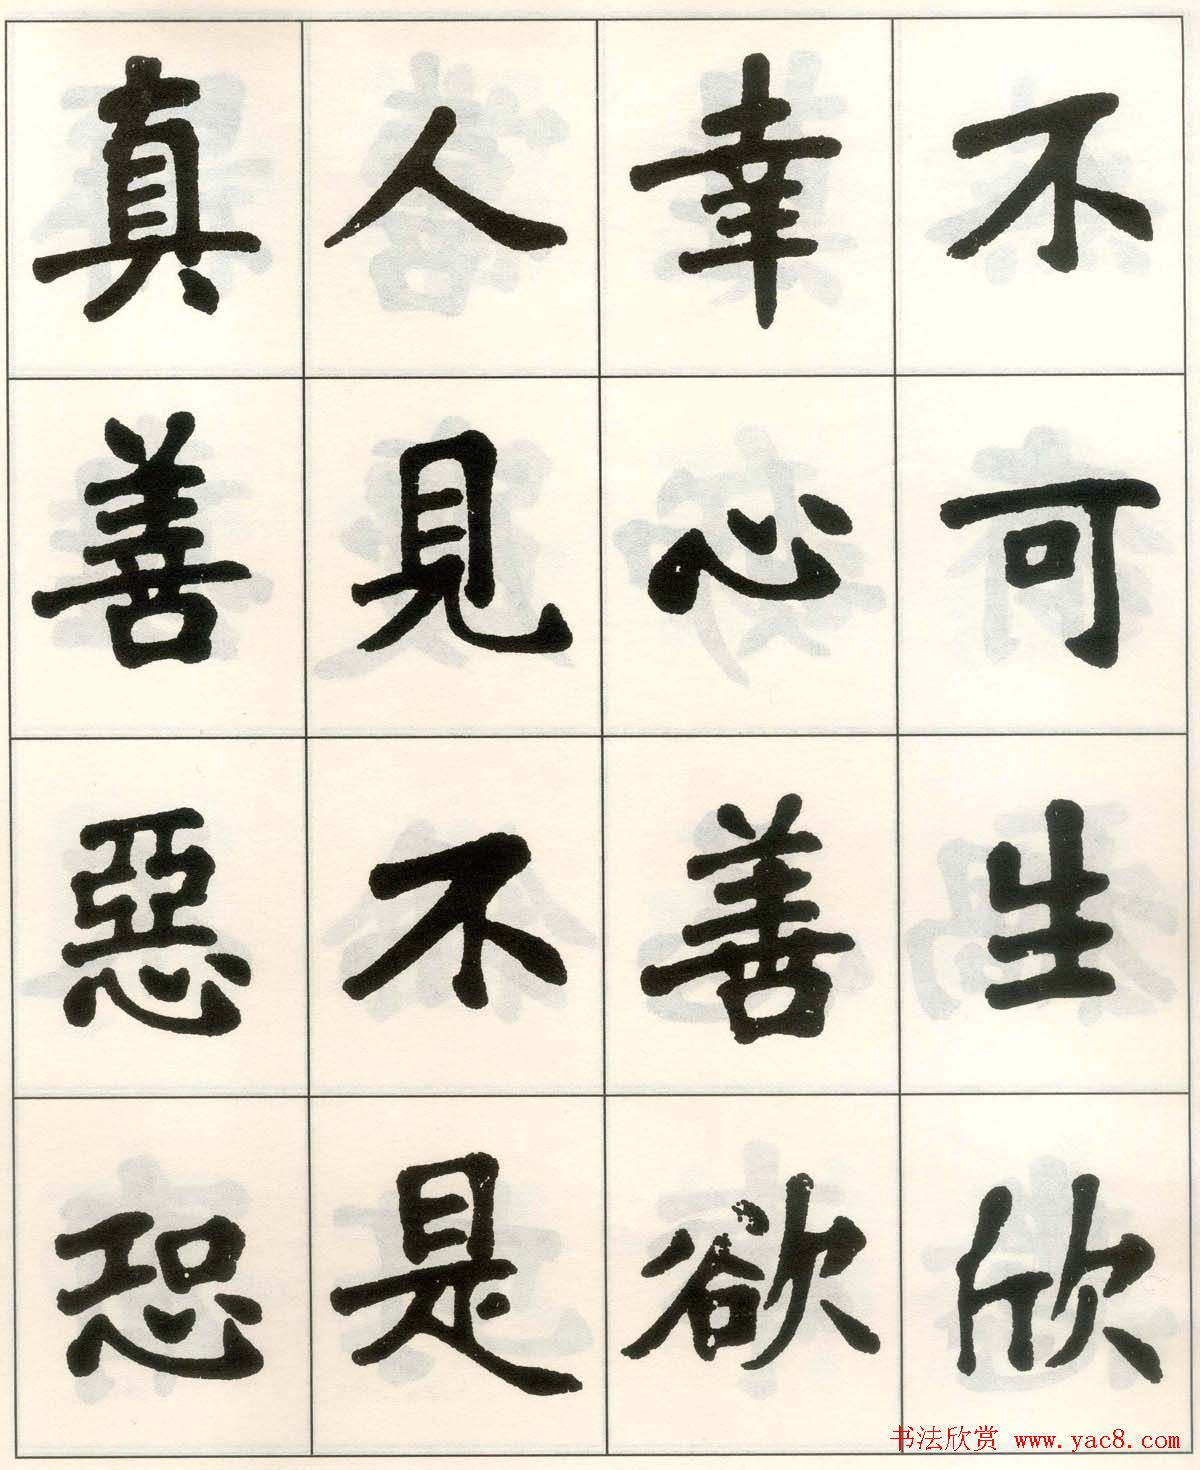 不可生欣
幸心善欲
人見不是
真善惡恐
书法欣赏 www.yac8.com